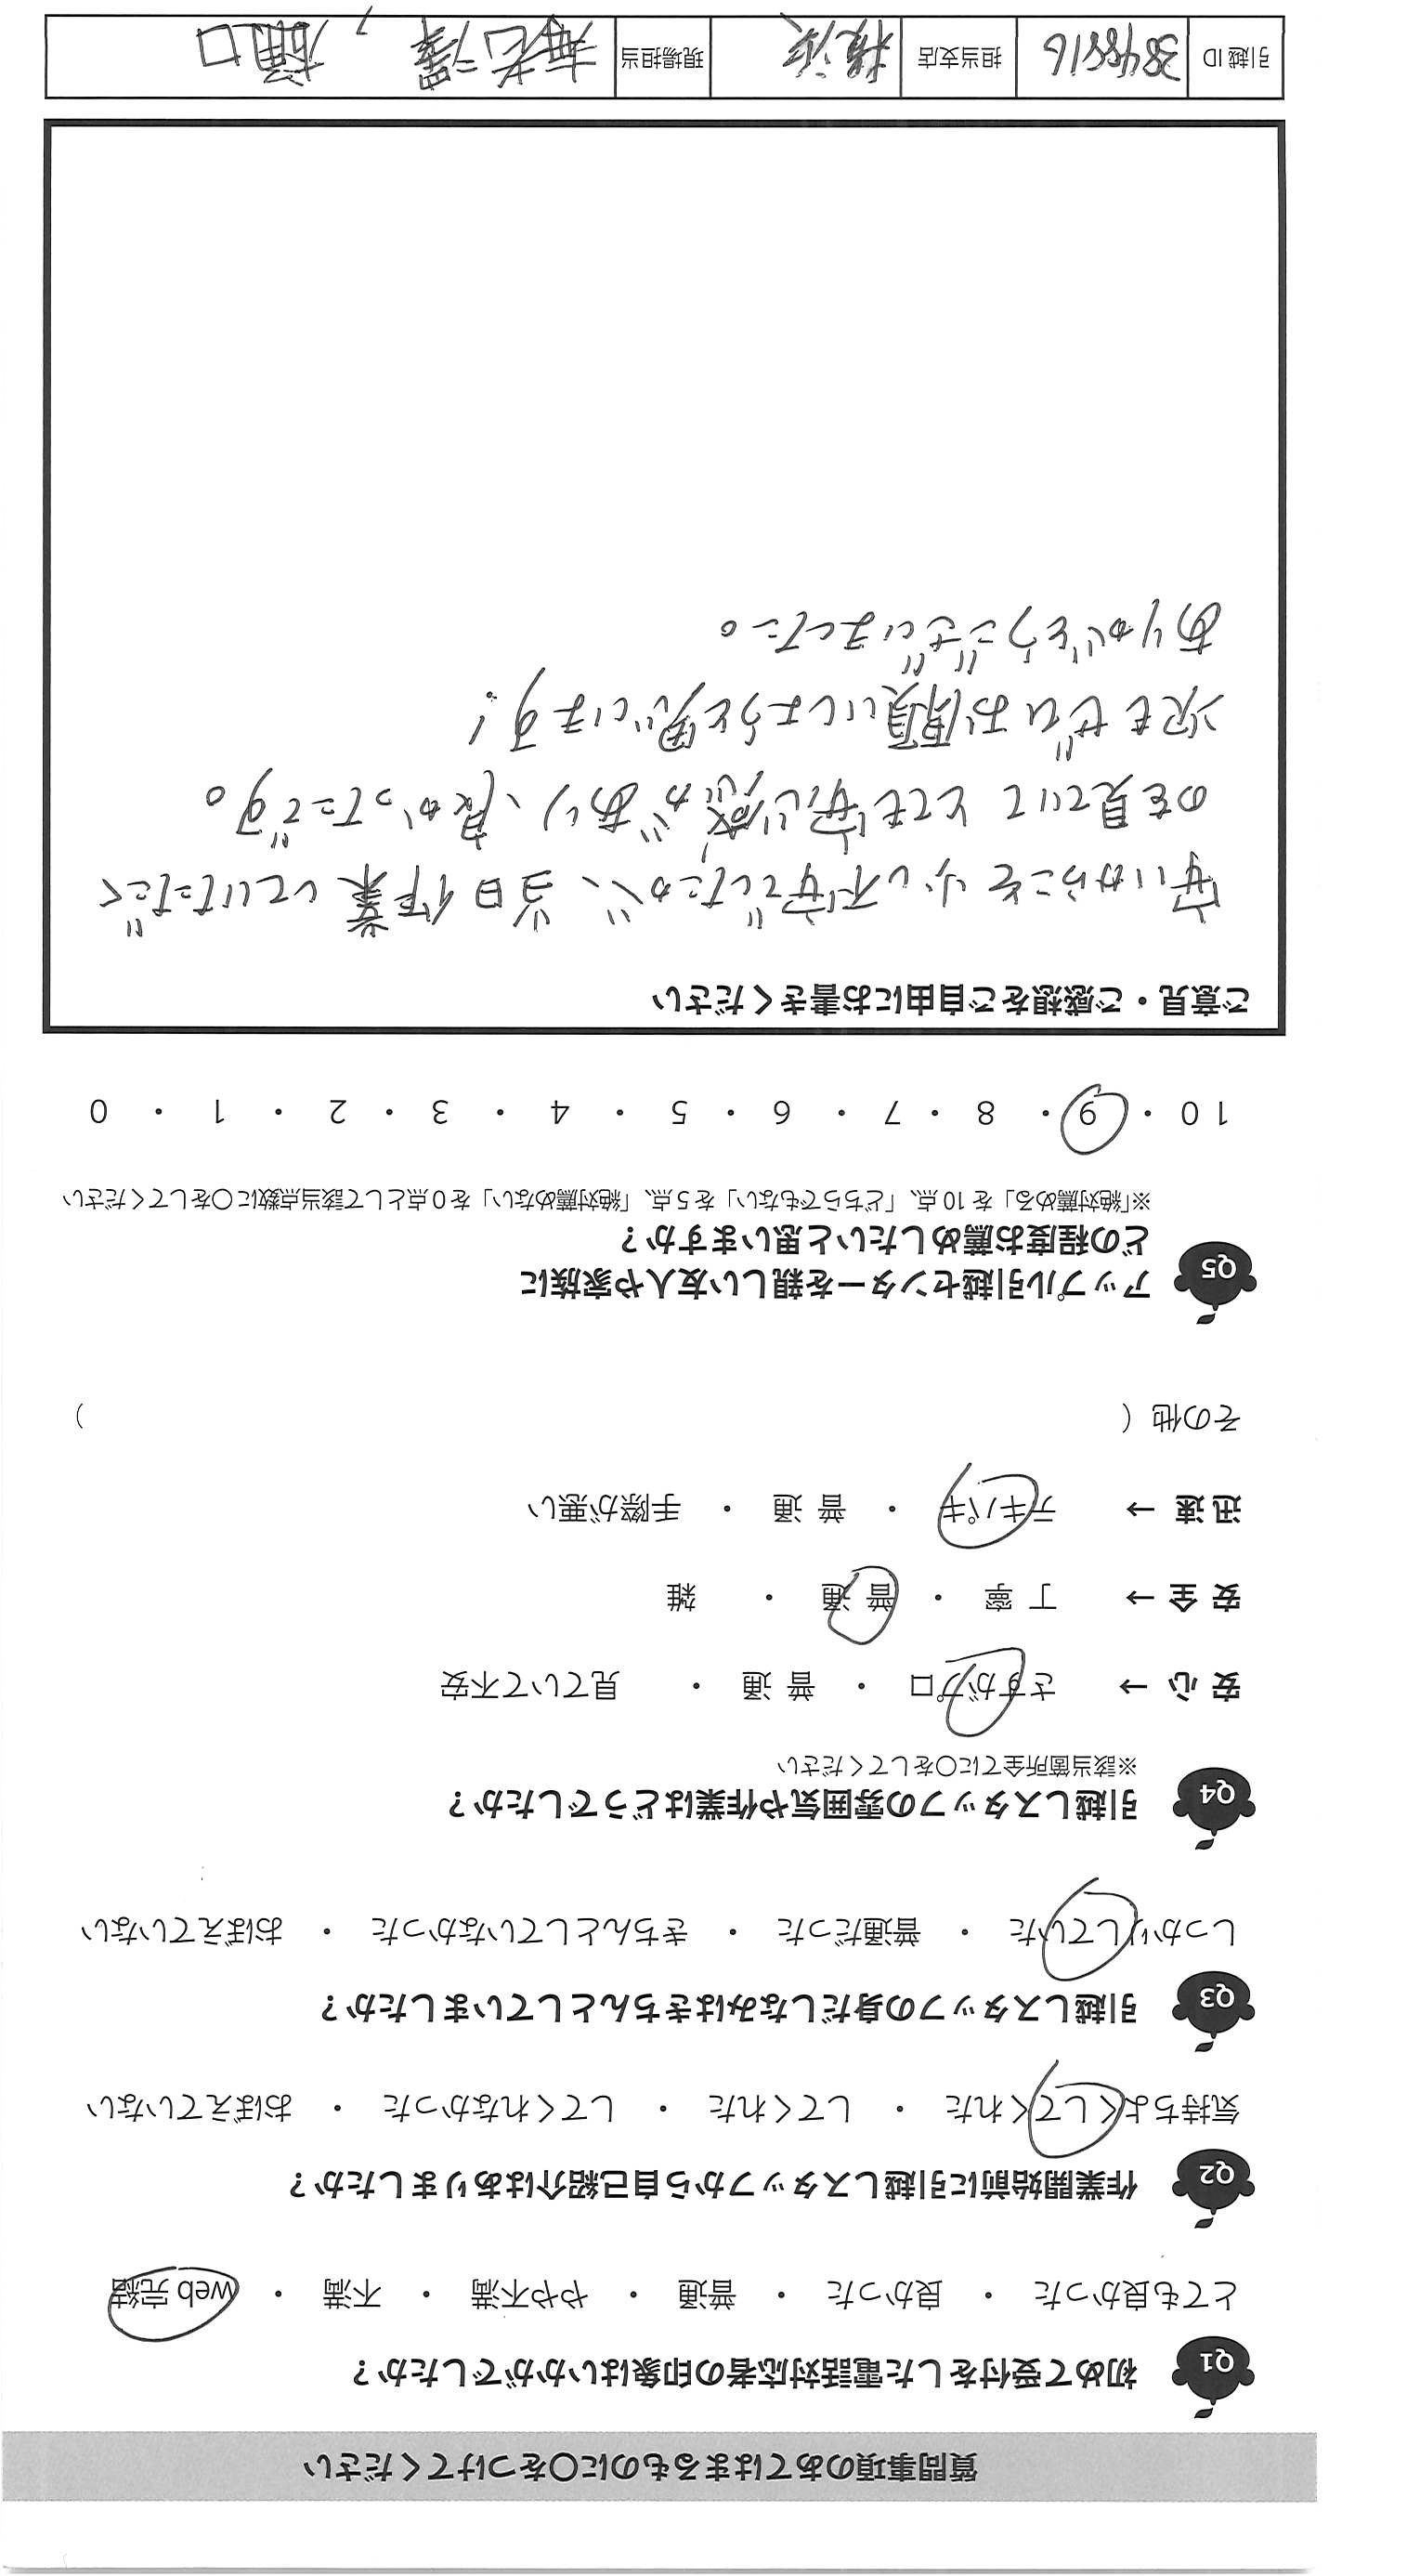 質問事項のあてはまるものに〇をつけてください
Q1 初めて受付をした電話対応者の印象はいかがでしたか？
とても良かった ・ 良かった ・ 普通 ・ やや不満 ・ 不満 ・ web 完結
Q2 作業開始前に引越しスタッフから自己紹介はありましたか？
気持ちよくしてくれた ・ してくれた ・ してくれなかった ・ おぼえていない
Q3 引越しスタッフの身だしなみはきちんとしていましたか？
しっかりしていた ・ 普通だった ・ きちんとしていなかった ・ おぼえていない
Q4 引越しスタッフの雰囲気や作業はどうでしたか？
※該当箇所全てに〇をしてください
安 心 → さすがプロ ・ 普 通 ・ 見ていて不安
安 全 → 丁 寧 ・ 普 通 ・ 雑
迅 速 → テキパキ ・ 普 通 ・ 手際が悪い
その他（ ）
Q5 アップル引越センターを親しい友人や家族に
どの程度お薦めしたいと思いますか？
※「絶対薦める」を 10 点、「どちらでもない」を 5 点、「絶対薦めない」を 0 点として該当点数に〇をしてください
10 ・ 9 ・ 8 ・ 7 ・ 6 ・ 5 ・ 4 ・ 3 ・ 2 ・ 1 ・ 0
ご意見・ご感想をご自由にお書きください
安いからこそ少し不安でしたが、当日作業していただく
のを見ていてとても安心感があり、良かったです。
次もぜひお願いしようと思います！
ありがとうございました。
引越 ID 担当支店 横浜 現場担当 海老澤, 樋口